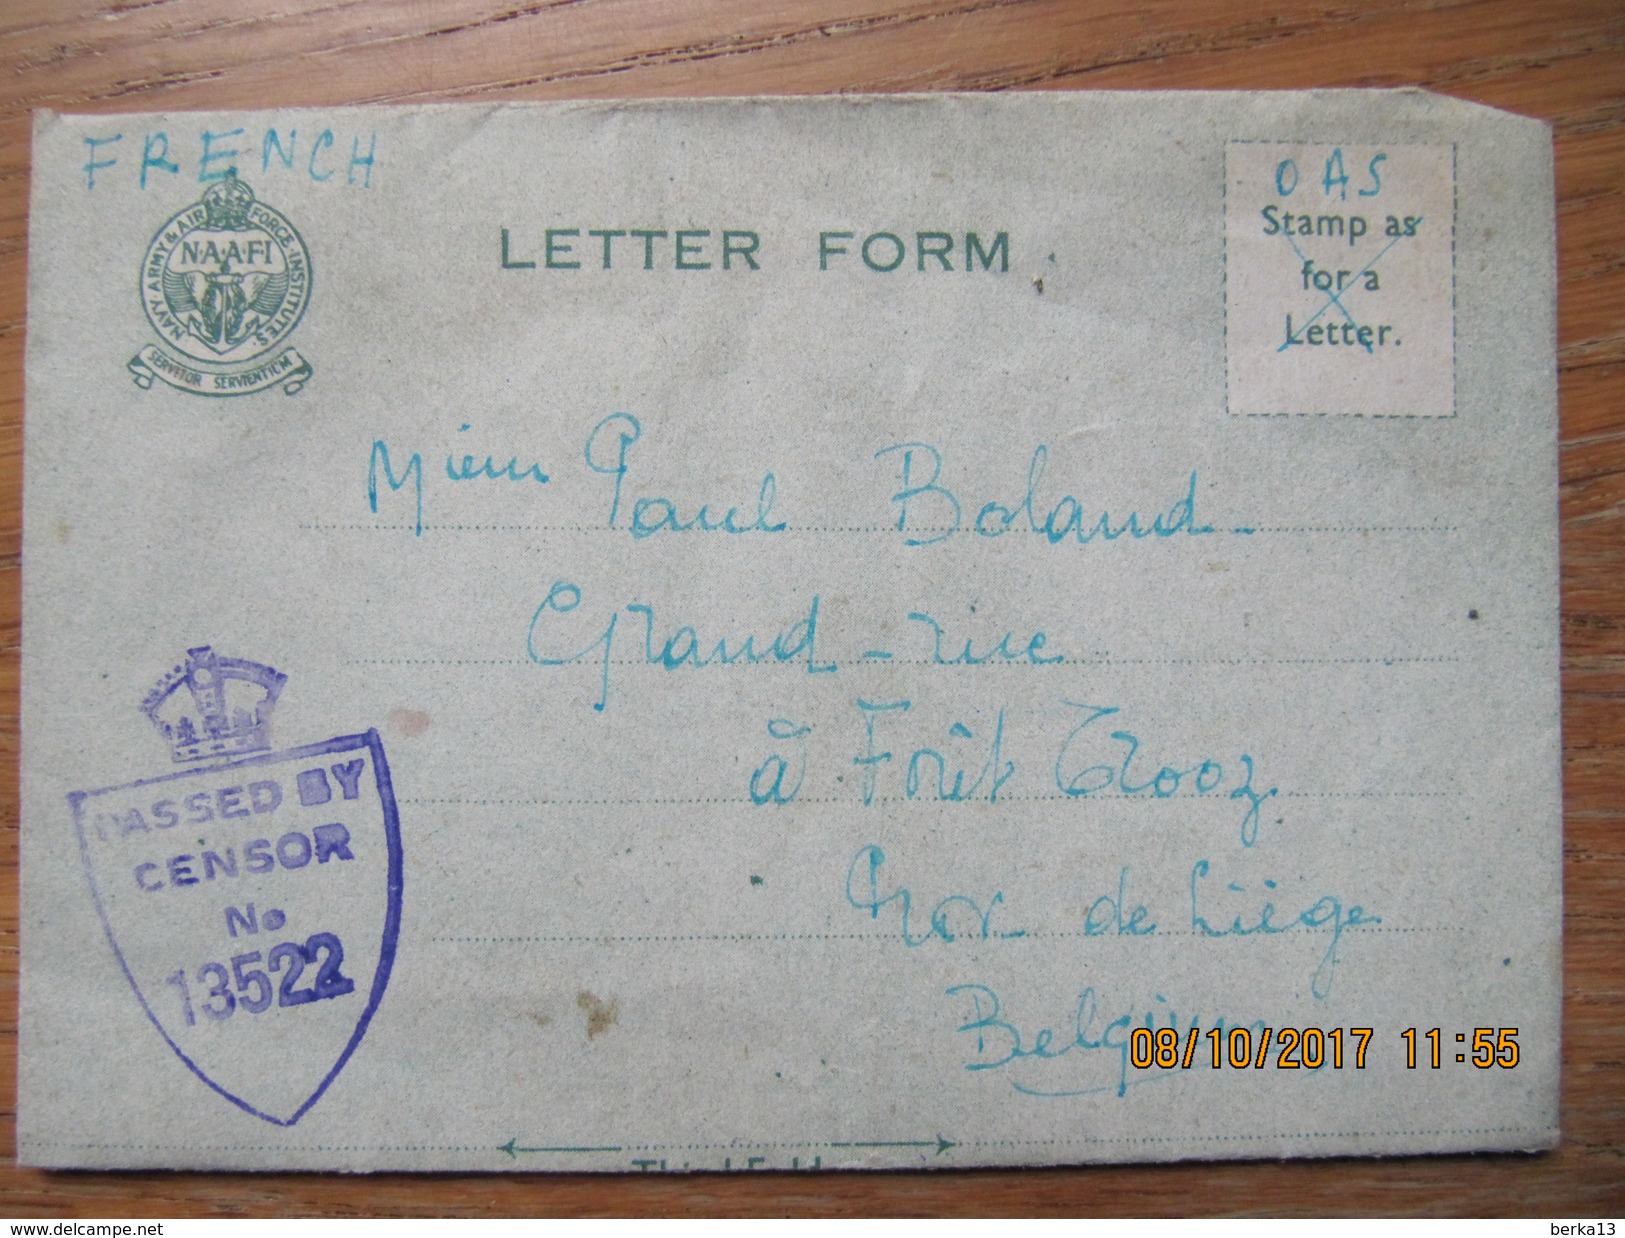 FRENCH
NAVY, ARMY & AIR FORCE INSTITUTES.
N·A·A·F·I
SERVITOR SERVIENTIUM
LETTER FORM
OAS
Stamp as
for a
Letter.
Paul Boland
Grand-rue
à Forêt Trooz
de Liège
Belgium
PASSED BY
CENSOR
No
13522
08/10/2017 11:55
www.delcampe.net
berka13